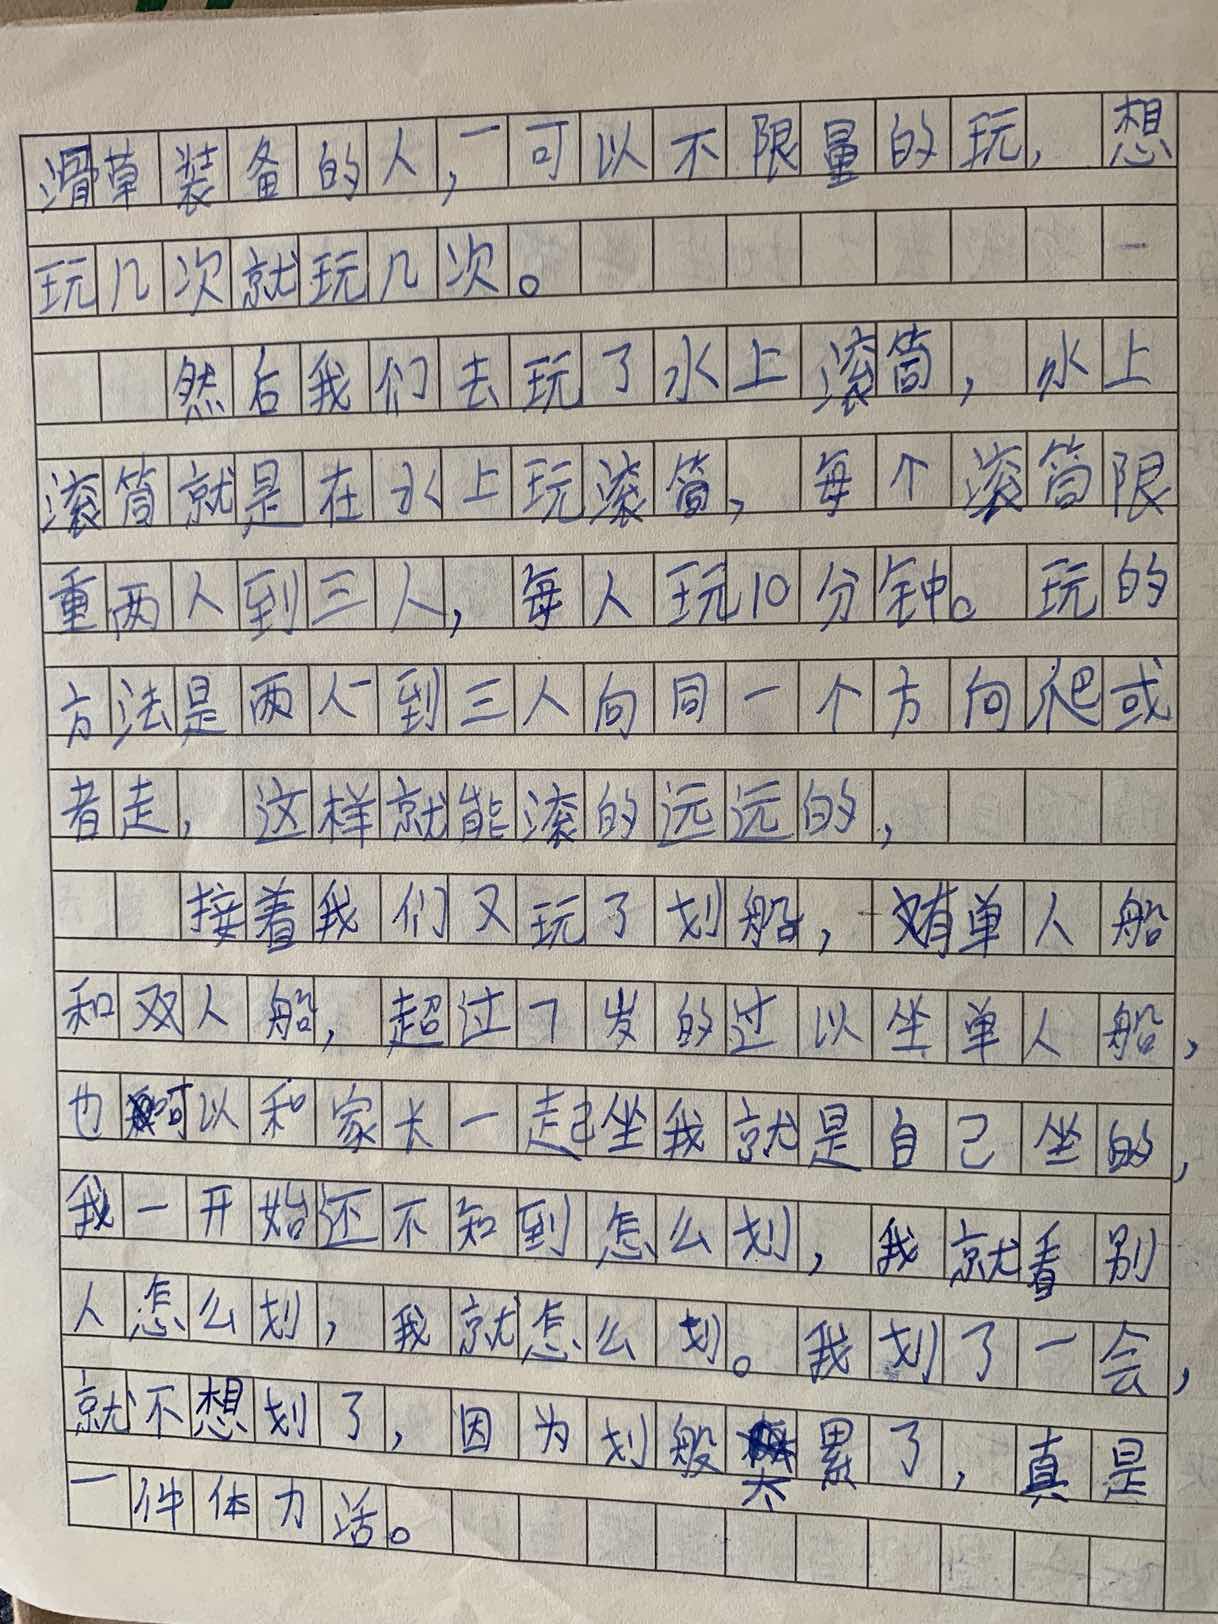 滑草装备的人，可以不限量的玩，想
玩几次就玩几次。
然后我们去玩了水上滚筒，水上
滚筒就是在水上玩滚筒，每个滚筒限
重两人到三人，每人玩10分钟。玩的
方法是两人到三人向同一个方向爬或
者走，这样就能滚的远远的，
接着我们又玩了划船，有单人船
和双人船，超过7岁的过以坐单人船，
也可以和家长一起坐我就是自己坐的，
我一开始还不知到怎么划，我就看别
人怎么划，我就怎么划。我划了一会，
就不想划了，因为划般太累了，真是
一件体力活。